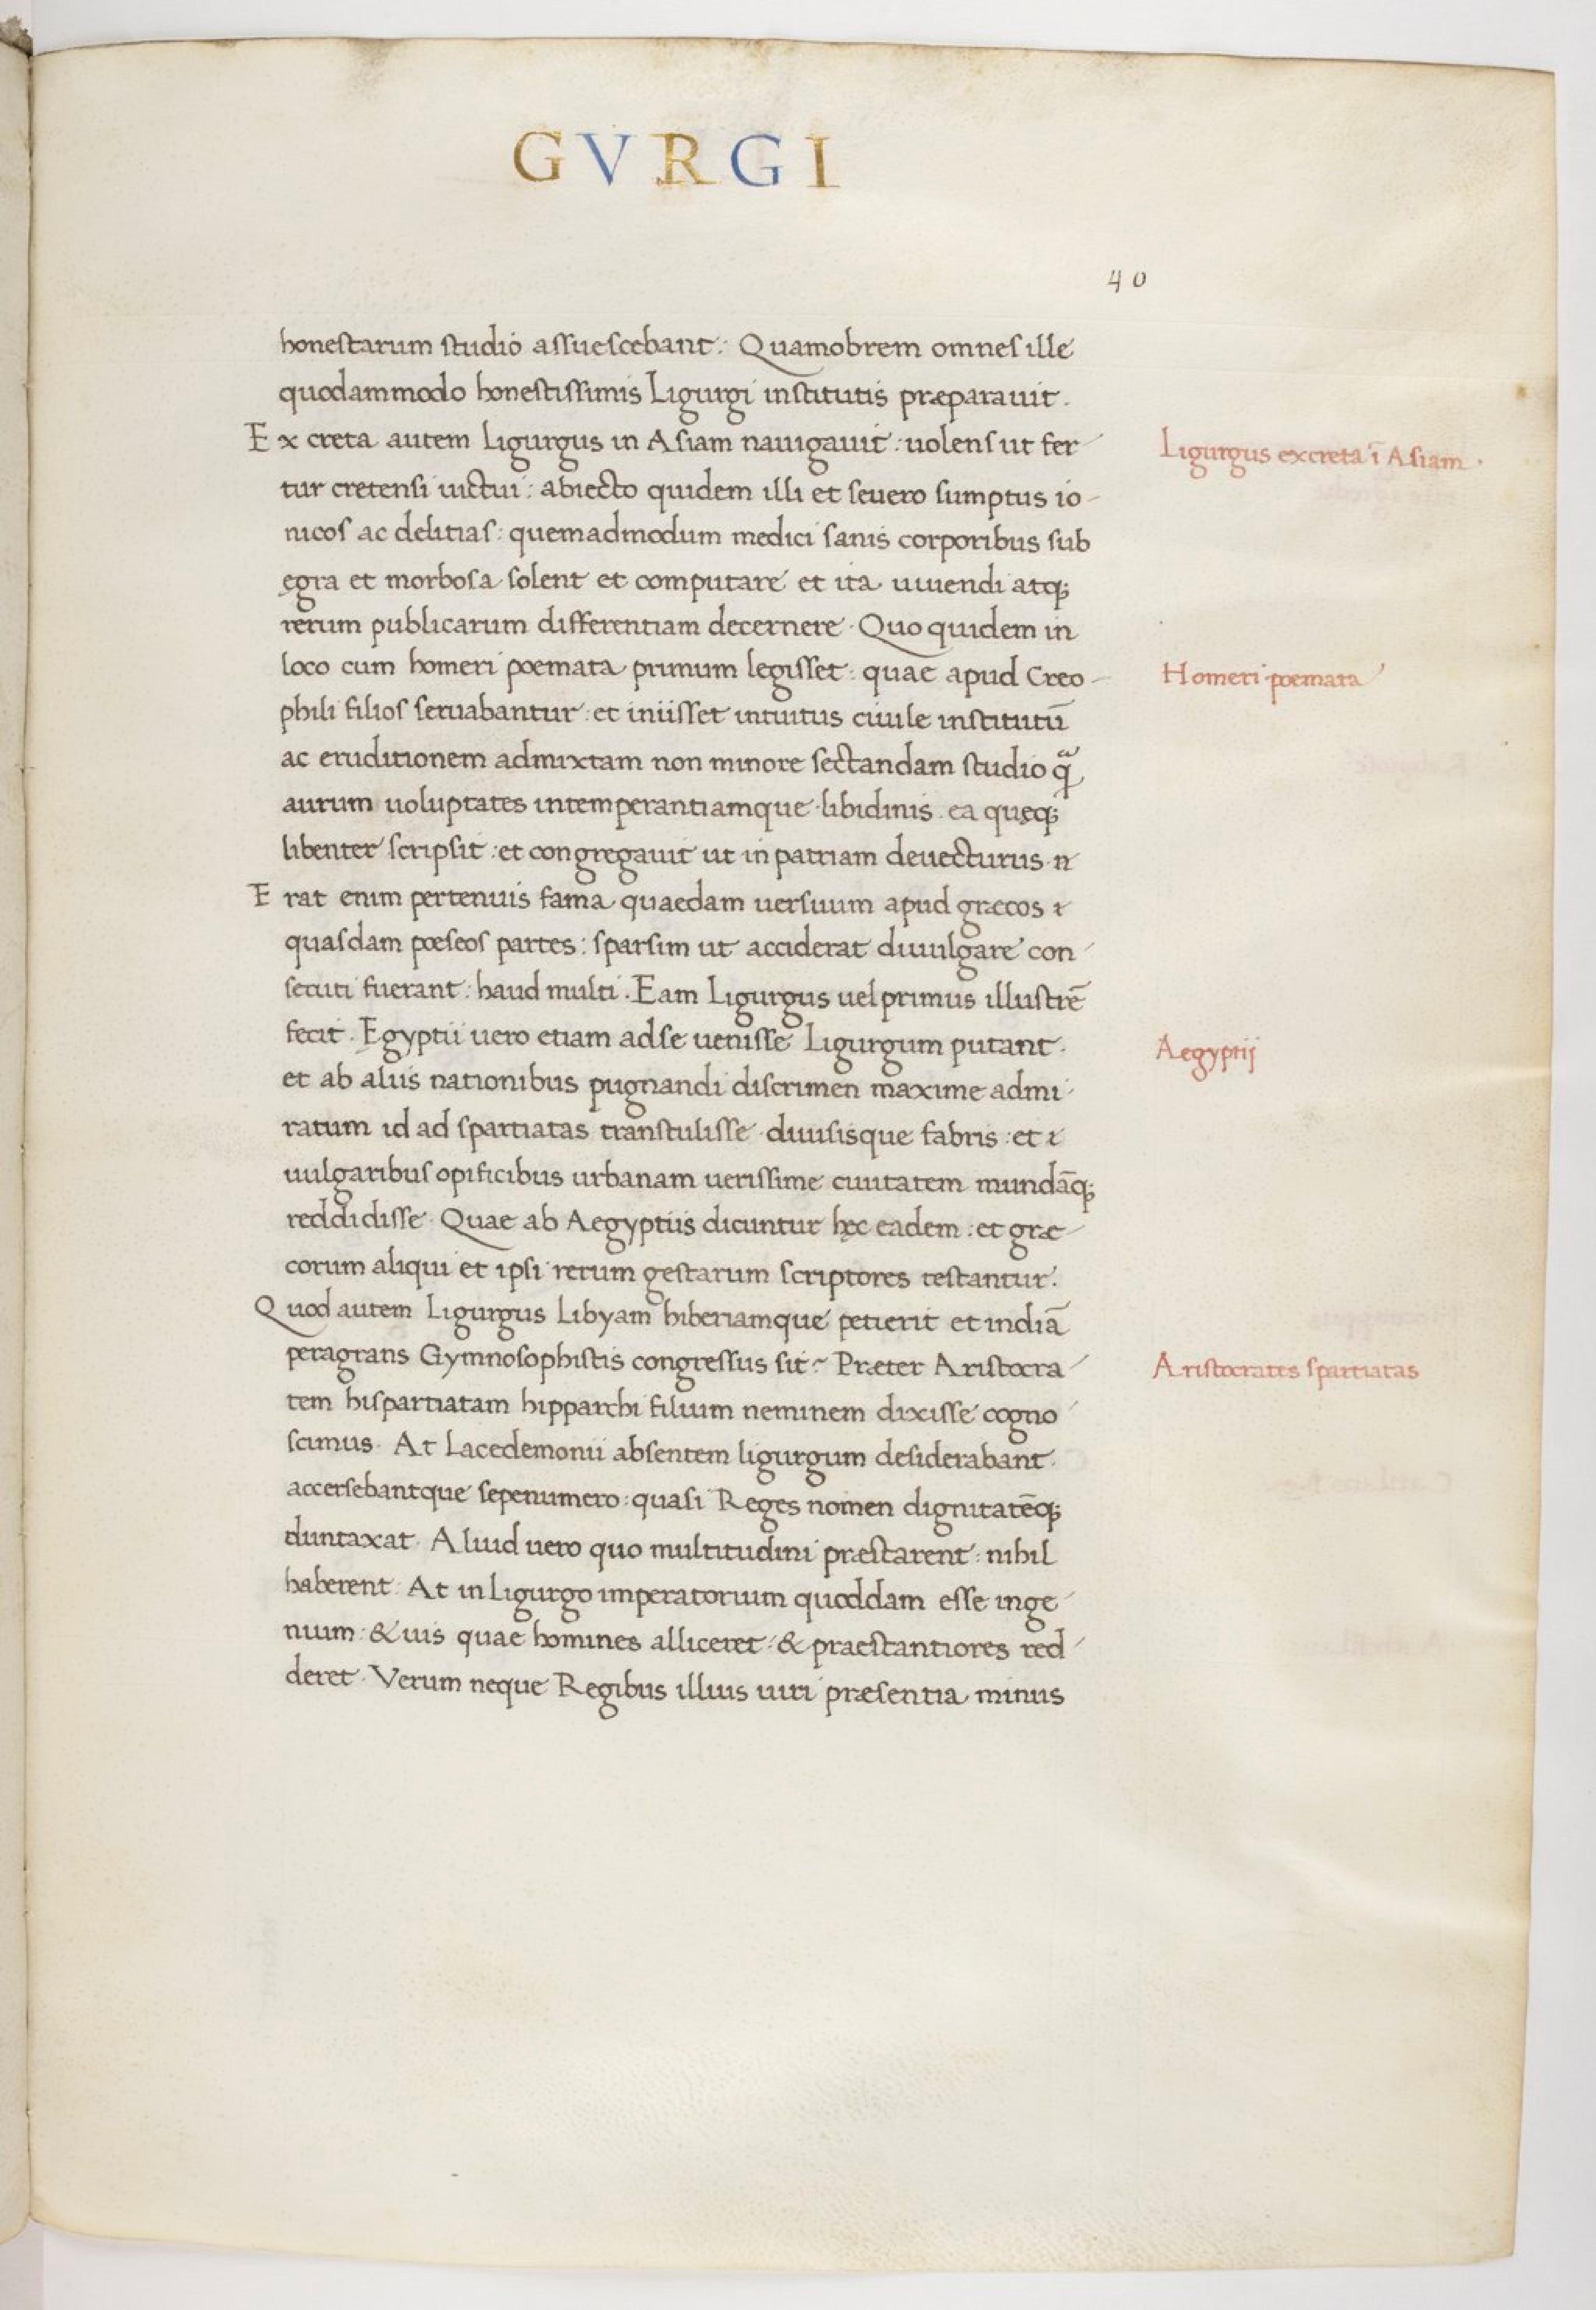 GVRGI
40
honestarum studio assuescebant: Quamobrem omnes ille
quodammodo honestissimis Ligurgi institutis præparauit.
Ex creta autem Ligurgus in Asiam nauigauit: uolens ut fer-
Ligurgus ex creta ī Asiam.
tur cretensi uictui: abiecto quidem illi et seuero sumptus io-
nicos ac delitias: quemadmodum medici sanis corporibus sub
ęgra et morbosa solent et computare et ita uiuendi atq;
rerum publicarum differentiam decernere. Quo quidem in
loco cum homeri poemata primum legisset: quae apud Creo-
Homeri poemata
phili filios seruabantur: et iniisset intuitus ciuile institutū
ac eruditionem admixtam non minore sectandam studio qᷓ
aurum uoluptates intemperantiamque libidinis. ea quęq;
libenter scripsit: et congregauit ut in patriam deuecturus n
Erat enim pertenuis fama quaedam uersuum apud græcos ⁊
quasdam poeseos partes: sparsim ut acciderat diuulgare con-
secuti fuerant: haud multi. Eam Ligurgus uel primus illustrē
fecit. Ęgyptii uero etiam ad se uenisse Ligurgum putant.
Aegyptij
et ab aliis nationibus pugnandi discrimen maxime admi-
ratum id ad spartiatas transtulisse diuisisque fabris: et ⁊
uulgaribus opificibus urbanam uerissime ciuitatem mundāq;
reddidisse. Quae ab Aegyptiis dicuntur hęc eadem: et græ-
corum aliqui et ipsi rerum gestarum scriptores testantur.
Quod autem Ligurgus Libyam hiberiamque petierit et indiā
peragrans Gymnosophistis congressus sit~ Præter Aristocra-
Aristocrates spartiatas
tem hispartiatam hipparchi filium neminem dixisse cogno-
scimus. At Lacedemonii absentem ligurgum desiderabant.
accersebantque sepenumero: quasi Reges nomen dignitatēq;
duntaxat. Aliud uero quo multitudini præstarent: nihil
haberent. At in Ligurgo imperatorium quoddam esse inge-
nium: & uis quae homines alliceret: & praestantiores red-
deret. Verum neque Regibus illius uiri præsentia minus